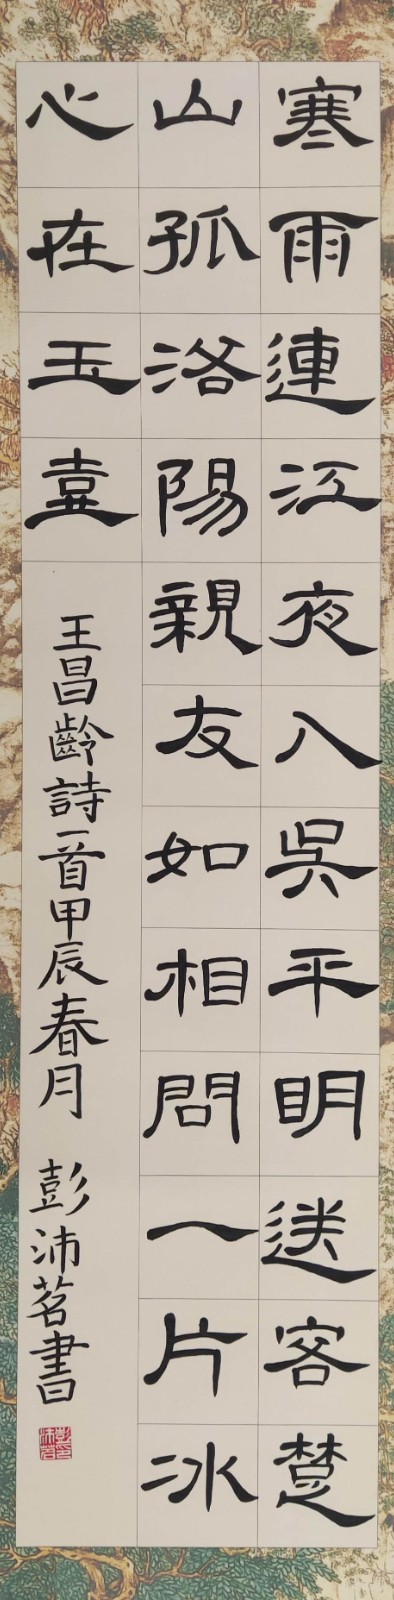 寒雨連江夜入吳平明送客楚
山孤洛陽親友如相問一片冰
心在玉壺
王昌齡詩一首甲辰春月 彭沛茗書